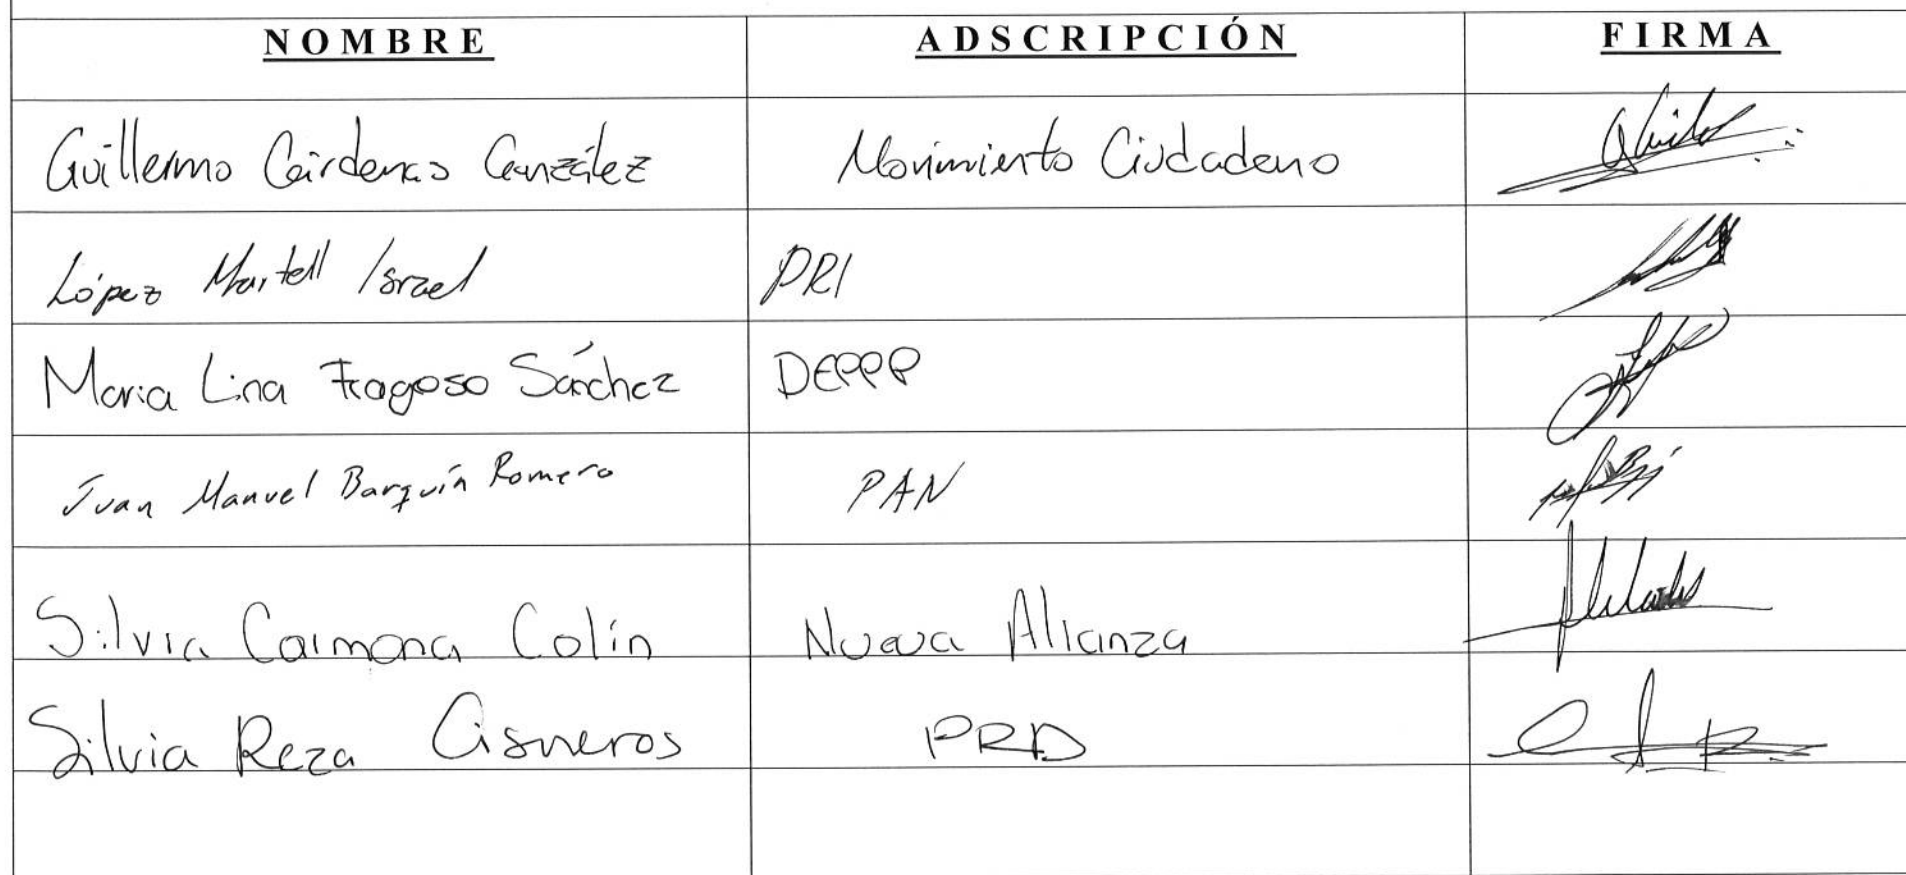 NOMBRE ADSCRIPCIÓN FIRMA
Guillermo Cárdenas González Movimiento Ciudadano
López Martell Israel PRI
Maria Lina Fragoso Sánchez DEPPP
Juan Manuel Barquín Romero PAN
Silvia Carmona Colín Nueva Alianza
Silvia Reza Cisneros PRD